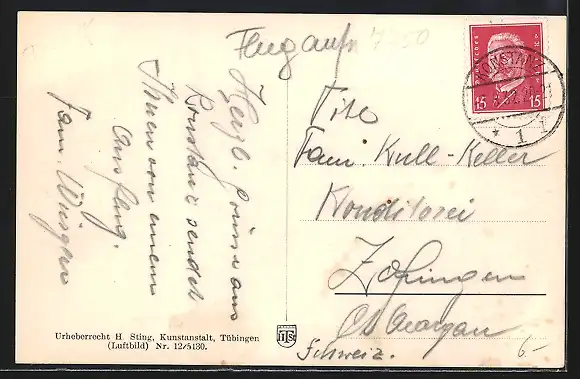 Flugaufn 7450
Herzl. Grüsse aus
Konstanz sendet
Ihnen von einem
Ausflug.
Fam.
Tito
Fam. Kull-Keller
Konditorei
Zofingen
Ct. Aargau
Schweiz.
KONSTANZ
15 15
* 1
6.-
Urheberrecht H. Sting, Kunstanstalt, Tübingen
(Luftbild) Nr. 12/5130.